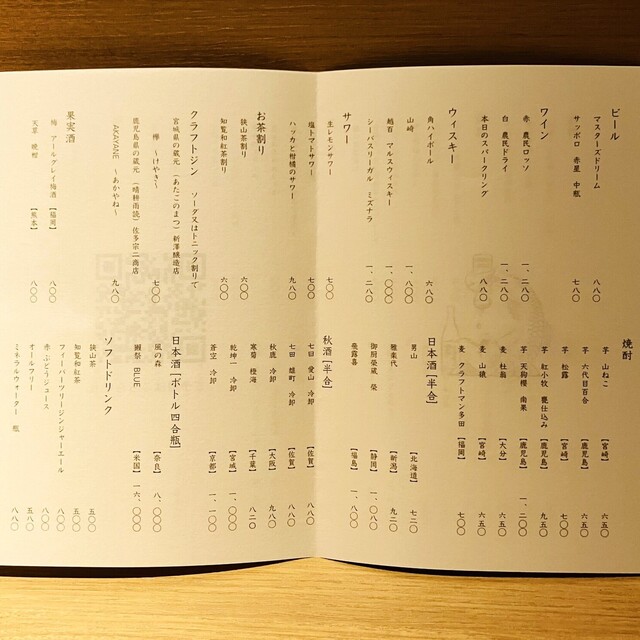 ビール
マスターズドリーム 八八〇
サッポロ 赤星 中瓶 七八〇
ワイン
赤 農民ロッソ 一、二八〇
白 農民ドライ 一、二八〇
本日のスパークリング 八八〇
ウィスキー
角ハイボール 六八〇
山崎 一、八〇〇
越百 マルスウィスキー 一、〇〇〇
シーバスリーガル ミズナラ 一、二八〇
サワー
生レモンサワー 七〇〇
塩トマトサワー 七〇〇
ハッカと柑橘のサワー 九八〇
お茶割り
狭山茶割り 六〇〇
知覧和紅茶割り 六〇〇
クラフトジン ソーダ又はトニック割りで
宮城県の蔵元 (あたごのまつ) 新澤醸造店
欅 〜けやき〜 七〇〇
鹿児島県の蔵元 (晴耕雨読) 佐多宗二商店
AKAYANE 〜あかやね〜 九八〇
果実酒
梅 アールグレイ梅酒 【福岡】 八〇〇
天草 晩柑 【熊本】 八〇〇
焼酎
芋 山ねこ 【宮崎】 六五〇
芋 六代目百合 【鹿児島】 六五〇
芋 松露 【宮崎】 七〇〇
芋 紅小牧 甕仕込み 【鹿児島】 九五〇
芋 天狗櫻 南果 【鹿児島】 一、二〇〇
麦 杜翁 【大分】 六五〇
麦 山猿 【宮崎】 六五〇
麦 クラフトマン多田 【福岡】 七〇〇
日本酒[半合]
男山 【北海道】 七二〇
雅楽代 【新潟】 九二〇
御厨榮蔵 榮 【静岡】 一、〇八〇
飛露喜 【福島】 一、一八〇
秋酒[半合]
七田 愛山 冷卸 【佐賀】 八八〇
七田 雄町 冷卸 【佐賀】 八八〇
秋鹿 冷卸 【大阪】 九八〇
寒菊 橙海 【千葉】 八二〇
乾坤一 冷卸 【宮城】 一、〇〇〇
蒼空 冷卸 【京都】 一、一〇〇
日本酒[ボトル四合瓶]
風の森 【奈良】 八、〇〇〇
獺祭 BLUE 【米国】 一六、〇〇〇
ソフトドリンク
狭山茶 五〇〇
知覧和紅茶 五〇〇
フィーバーツリージンジャーエール 八〇〇
赤ぶどうジュース 八〇〇
オールフリー 五八〇
ミネラルウォーター 瓶 八八〇